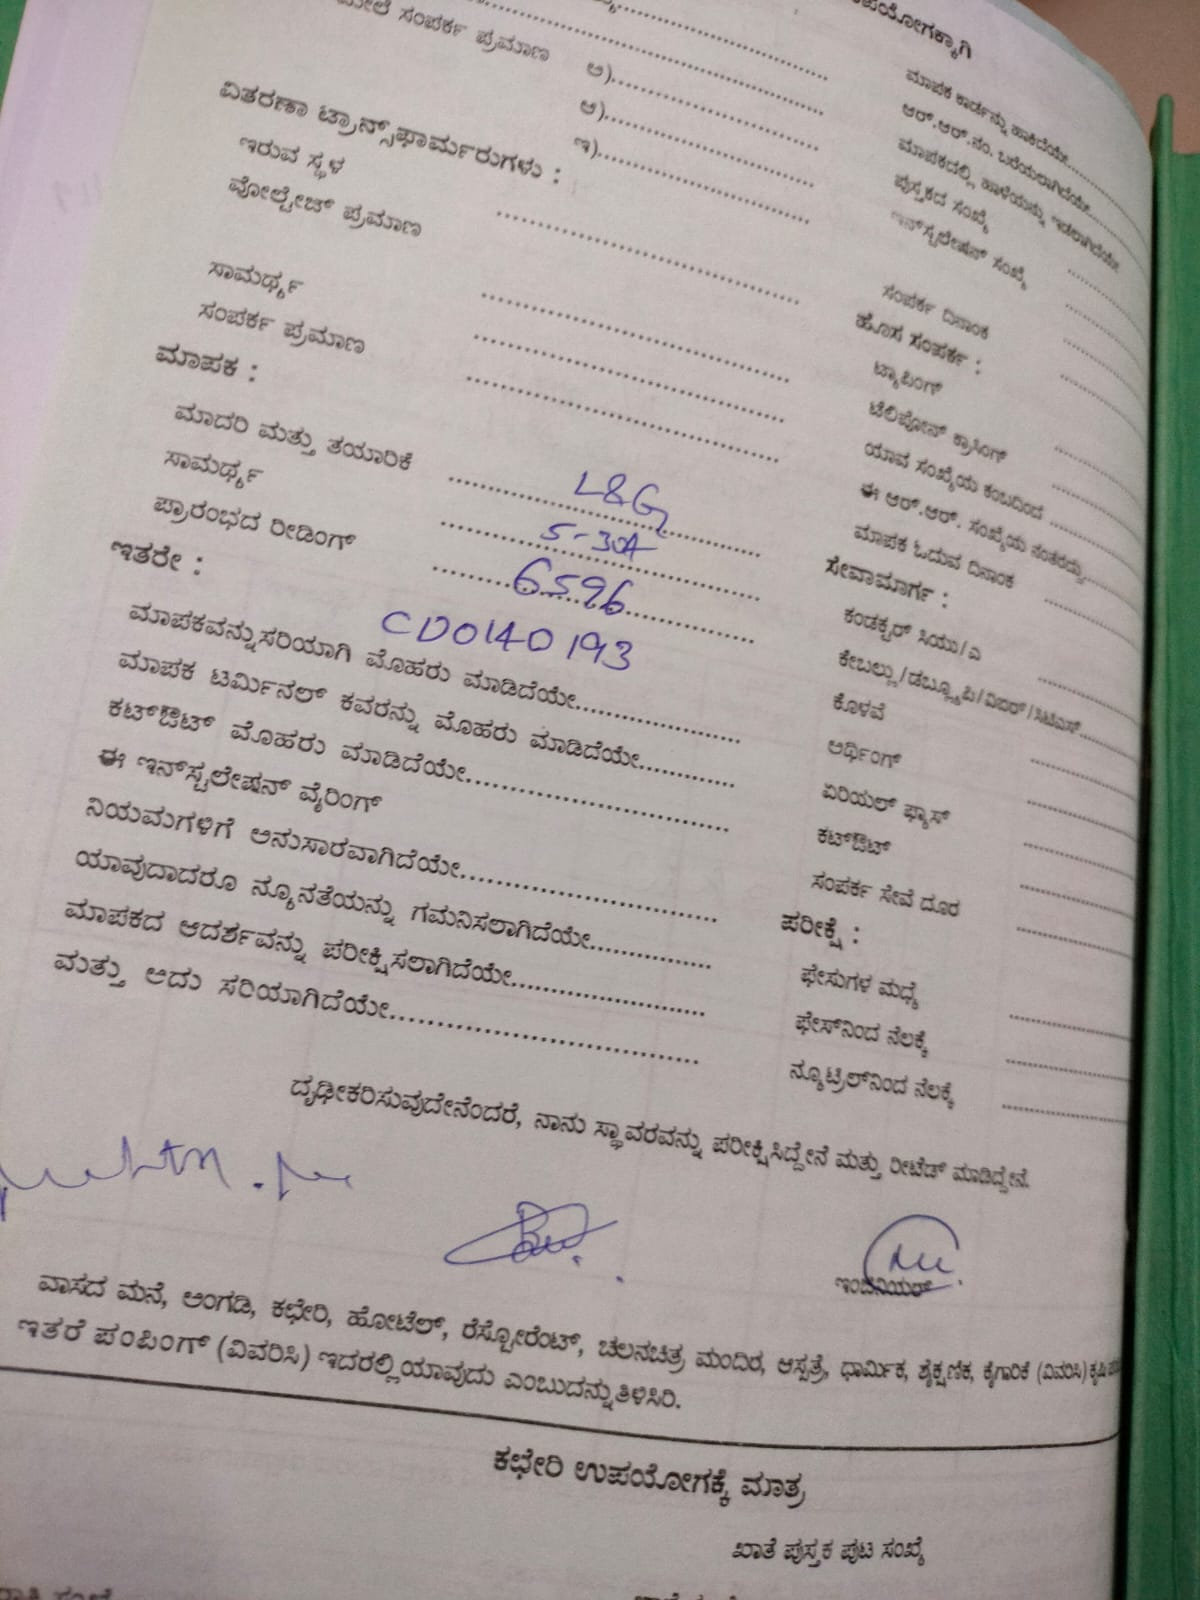 ಉಪಯೋಗಕ್ಕಾಗಿ
ಮೇಲೆ ಸಂಪರ್ಕ ಪ್ರಮಾಣ
ಅ)........................
ಆ)........................
ಇ)........................
ವಿತರಣಾ ಟ್ರಾನ್ಸ್‌ಫಾರ್ಮರುಗಳು :
ಇರುವ ಸ್ಥಳ ........................
ವೋಲ್ಟೇಜ್ ಪ್ರಮಾಣ
ಸಾಮರ್ಥ್ಯ ........................
ಸಂಪರ್ಕ ಪ್ರಮಾಣ ........................
ಮಾಪಕ :
ಮಾದರಿ ಮತ್ತು ತಯಾರಿಕೆ L&G
ಸಾಮರ್ಥ್ಯ 5-30A
ಪ್ರಾರಂಭದ ರೀಡಿಂಗ್ 6596
ಇತರೇ : CD0140193
ಮಾಪಕವನ್ನು ಸರಿಯಾಗಿ ಮೊಹರು ಮಾಡಿದೆಯೇ........................
ಮಾಪಕ ಟರ್ಮಿನಲ್ ಕವರನ್ನು ಮೊಹರು ಮಾಡಿದೆಯೇ..............
ಕಟ್‌ಔಟ್ ಮೊಹರು ಮಾಡಿದೆಯೇ........................
ಈ ಇನ್‌ಸ್ಟಲೇಷನ್ ವೈರಿಂಗ್
ನಿಯಮಗಳಿಗೆ ಅನುಸಾರವಾಗಿದೆಯೇ........................
ಯಾವುದಾದರೂ ನ್ಯೂನತೆಯನ್ನು ಗಮನಿಸಲಾಗಿದೆಯೇ................
ಮಾಪಕದ ಆದರ್ಶವನ್ನು ಪರೀಕ್ಷಿಸಲಾಗಿದೆಯೇ........................
ಮತ್ತು ಅದು ಸರಿಯಾಗಿದೆಯೇ........................
ಮಾಪಕ ಕಾರ್ಡನ್ನು ಹಾಕಿದೆಯೇ............
ಆರ್.ಆರ್.ನಂ. ಬರೆಯಲಾಗಿದೆಯೇ........
ಮಾಪಕದಲ್ಲಿ ಹಾಳೆಯನ್ನು ಇಡಲಾಗಿದೆಯೇ
ಪುಸ್ತಕದ ಸಂಖ್ಯೆ ............
ಇನ್‌ಸ್ಟಲೇಷನ್ ಸಂಖ್ಯೆ ............
ಸಂಪರ್ಕ ದಿನಾಂಕ ............
ಹೊಸ ಸಂಪರ್ಕ :
ಟ್ಯಾಪಿಂಗ್ ............
ಟೆಲಿಪೋನ್ ಕ್ರಾಸಿಂಗ್ ............
ಯಾವ ಸಂಖ್ಯೆಯ ಕಂಬದಿಂದ ............
ಈ ಆರ್.ಆರ್. ಸಂಖ್ಯೆಯ ನಂತರದ್ದು........
ಮಾಪಕ ಓದುವ ದಿನಾಂಕ ............
ಸೇವಾಮಾರ್ಗ :
ಕಂಡಕ್ಟರ್ ಸಿಯು/ಎ ............
ಕೇಬಲ್ಲು/ಡಬ್ಲ್ಯೂಪಿ/ವಿಐಆರ್/ಸಿಟಿಎಸ್........
ಕೊಳವೆ ............
ಅರ್ಥಿಂಗ್ ............
ಏರಿಯಲ್ ಫ್ಯೂಸ್ ............
ಕಟ್‌ಔಟ್ ............
ಸಂಪರ್ಕ ಸೇವೆ ದೂರ ............
ಪರೀಕ್ಷೆ :
ಫೇಸುಗಳ ಮಧ್ಯೆ ............
ಫೇಸ್‌ನಿಂದ ನೆಲಕ್ಕೆ ............
ನ್ಯೂಟ್ರಿಲ್‌ನಿಂದ ನೆಲಕ್ಕೆ ............
ದೃಢೀಕರಿಸುವುದೇನೆಂದರೆ, ನಾನು ಸ್ಥಾವರವನ್ನು ಪರೀಕ್ಷಿಸಿದ್ದೇನೆ ಮತ್ತು ರೀಟೆಡ್ ಮಾಡಿದ್ದೇನೆ.
ಇಂಜಿನಿಯರ್
ವಾಸದ ಮನೆ, ಅಂಗಡಿ, ಕಛೇರಿ, ಹೋಟೆಲ್, ರೆಸ್ಟೋರೆಂಟ್, ಚಲನಚಿತ್ರ ಮಂದಿರ, ಆಸ್ಪತ್ರೆ, ಧಾರ್ಮಿಕ, ಶೈಕ್ಷಣಿಕ, ಕೈಗಾರಿಕೆ (ವಿವರಿಸಿ) ಕೃಷಿ
ಇತರೆ ಪಂಪಿಂಗ್ (ವಿವರಿಸಿ) ಇದರಲ್ಲಿ ಯಾವುದು ಎಂಬುದನ್ನು ತಿಳಿಸಿರಿ.
ಕಛೇರಿ ಉಪಯೋಗಕ್ಕೆ ಮಾತ್ರ
ಖಾತೆ ಪುಸ್ತಕ ಪುಟ ಸಂಖ್ಯೆ